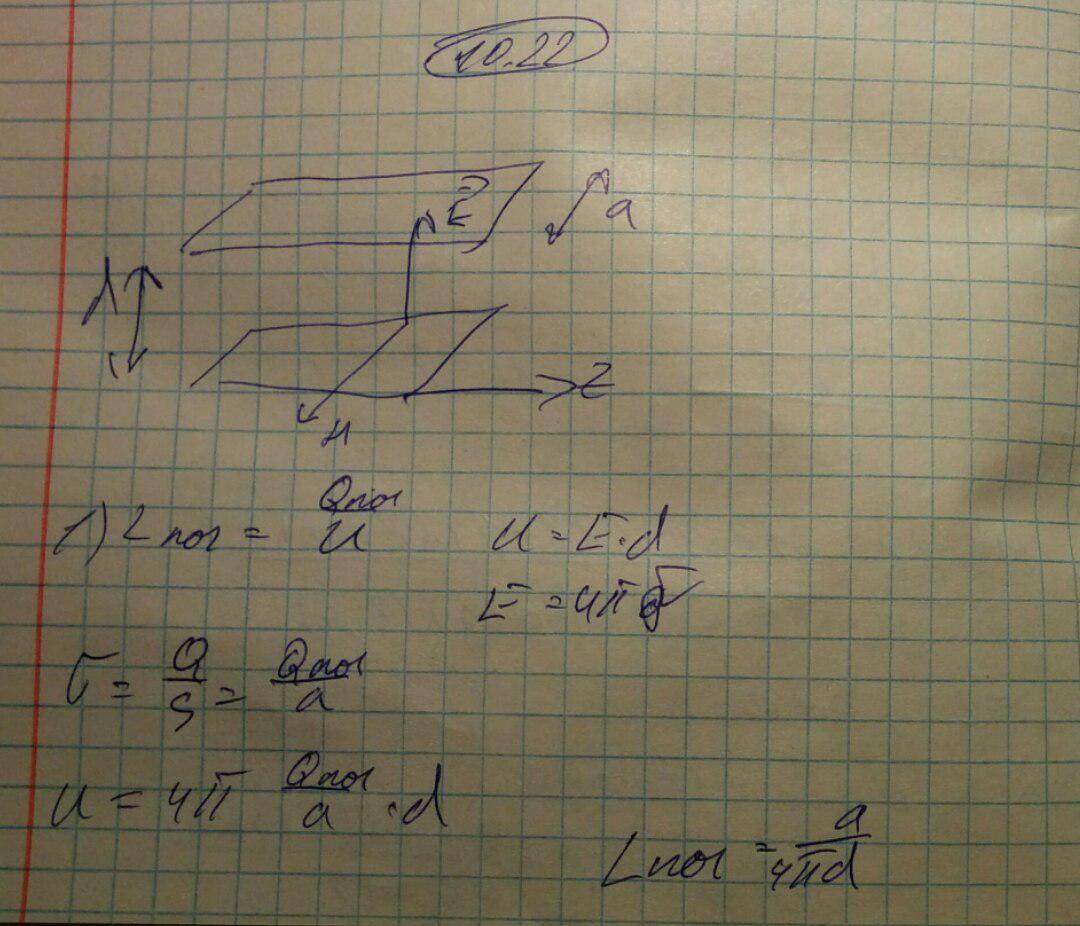 10.22
E⃗
a
d
z
H
1) C пог = Qпог / U    U = E·d
E = 4π σ
σ = Q / S = Qпог / a
U = 4π Qпог / a · d
Cпог = a / 4πd